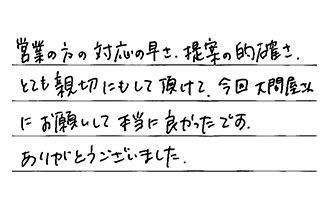 営業の方の対応の早さ、提案の的確さ、
とても親切にもして頂けて、今回大問屋さん
にお願いして本当に良かったです。
ありがとうございました。